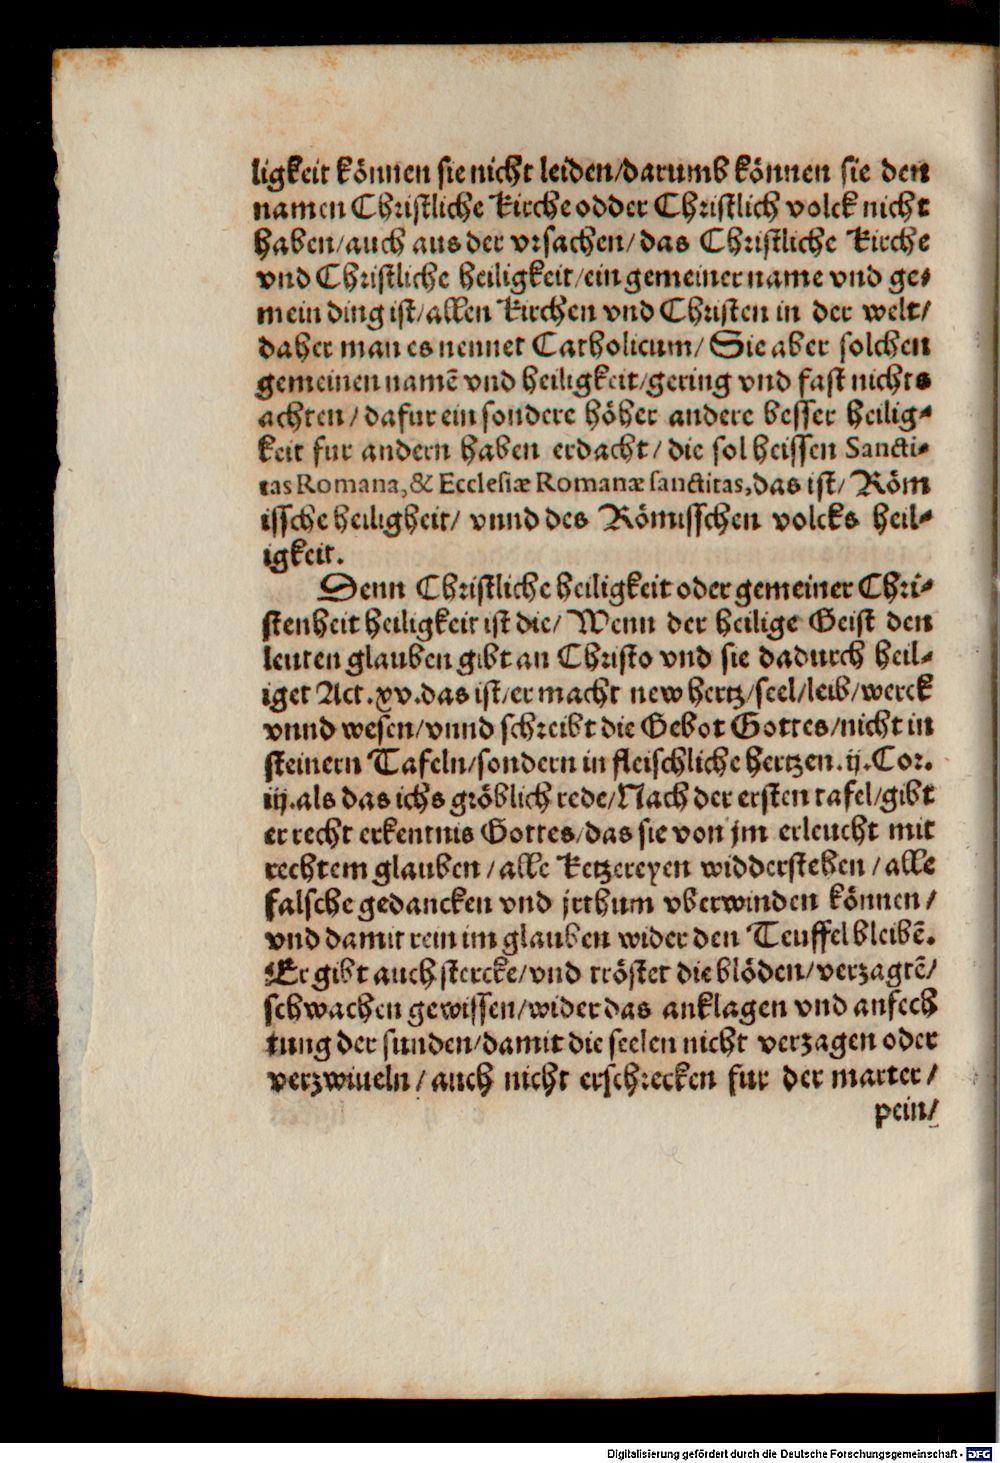 ligkeit können sie nicht leiden/darumb können sie den
namen Christliche Kirche odder Christlich volck nicht
haben/auch aus der vrsachen/das Christliche Kirche
vnd Christliche heiligkeit/ein gemeiner name vnd ge-
mein ding ist/allen Kirchen vnd Christen in der welt/
daher man es nennet Catholicum/Sie aber solchen
gemeinen namē vnd heiligkeit/gering vnd fast nichts
achten/dafur ein sondere höher andere besser heilig-
keit fur andern haben erdacht/die sol heissen Sancti-
tas Romana, & Ecclesiæ Romanæ sanctitas, das ist/Röm
issche heiligheit/vnnd des Römisschen volcks heil-
igkeit.
Denn Christliche heiligkeit oder gemeiner Chri-
stenheit heiligkeit ist die/Wenn der heilige Geist den
leuten glauben gibt an Christo vnd sie dadurch heil-
iget Act.xv.das ist/er macht new hertz/seel/leib/werck
vnnd wesen/vnnd schreibt die Gebot Gottes/nicht in
steinern Tafeln/sondern in fleischliche hertzen.ij.Cor.
iij.als das ichs gröblich rede/Nach der ersten tafel/gibt
er recht erkentnis Gottes/das sie von jm erleucht mit
rechtem glauben/alle Ketzereyen widderstehen/alle
falsche gedancken vnd jrthum vberwinden können/
vnd damit rein im glauben wider den Teuffel bleibē.
Er gibt auch stercke/vnd tröstet die blöden/verzagtē/
schwachen gewissen/wider das anklagen vnd anfech
tung der sunden/damit die seelen nicht verzagen oder
verzwiueln/auch nicht erschrecken fur der marter/
pein/
Digitalisierung gefördert durch die Deutsche Forschungsgemeinschaft - DFG